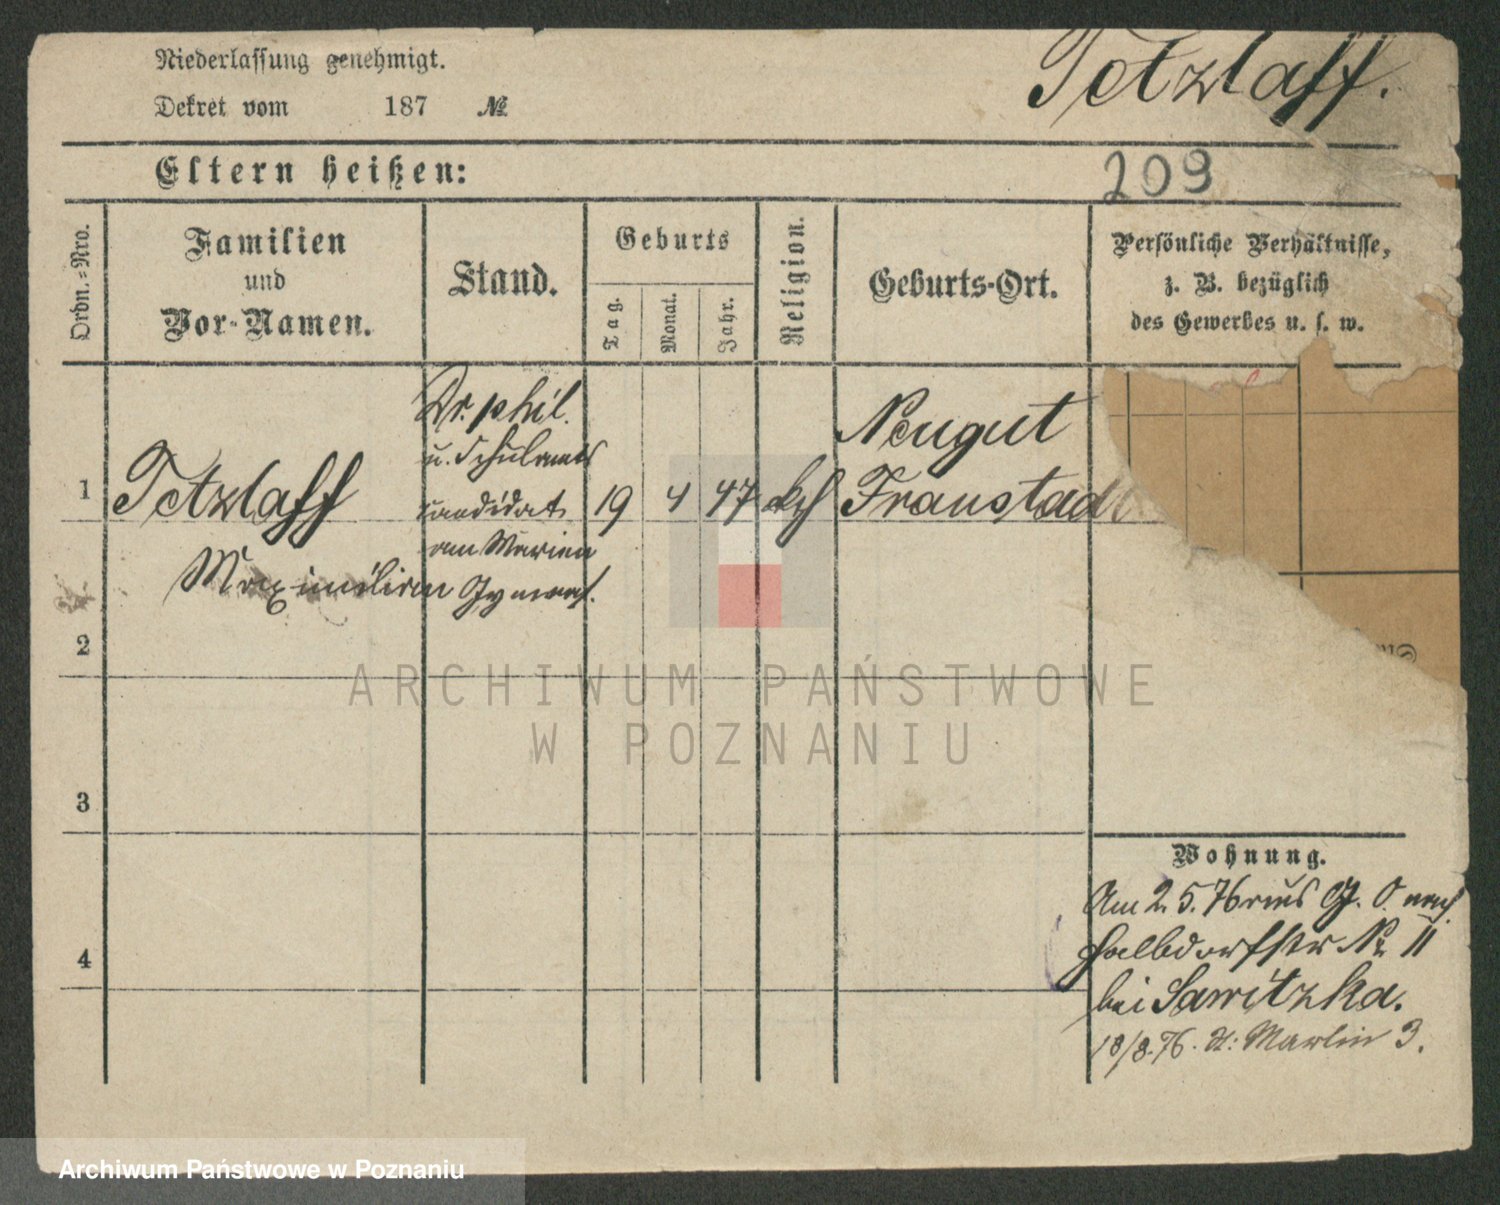 Niederlassung genehmigt.
Tetzlaff.
Dekret vom 187 №
Eltern heißen:
209
Ordn.-Nro.
Familien
und
Vor-Namen.
Stand.
Geburts
Tag.
Monat.
Jahr.
Religion.
Geburts-Ort.
Persönliche Verhältnisse,
z. B. bezüglich
des Gewerbes u. s. w.
Dr. phil.
u. Schulamts
candidat
am Marien
Gymnas.
1 Tetzlaff
Maximilian
19 4 47
Neugut
Fraustadt
2
3
4
Wohnung.
Am 2. 5. 76 nach
Halbdorfstr № 11
bei Sawitzka.
18/8. 76. St: Martin 3.
ARCHIWUM PAŃSTWOWE
W POZNANIU
Archiwum Państwowe w Poznaniu